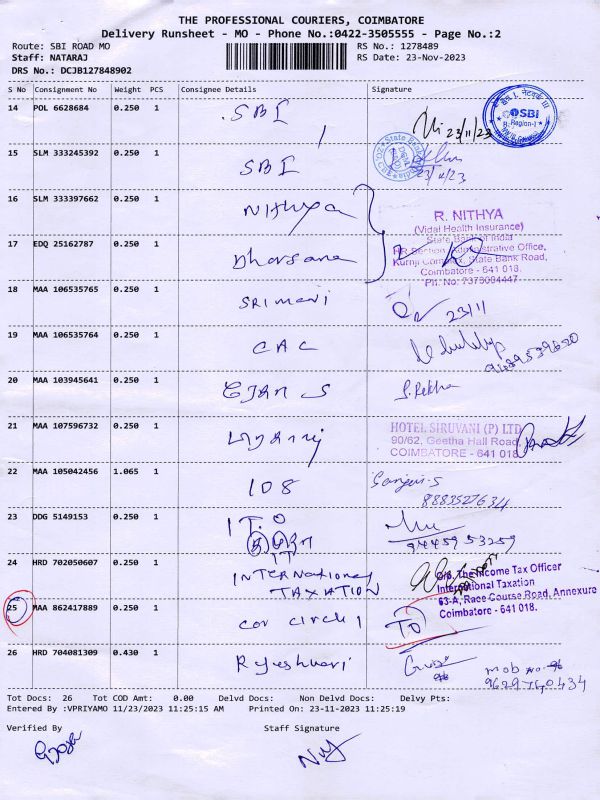 THE PROFESSIONAL COURIERS, COIMBATORE
Delivery Runsheet - MO - Phone No.:0422-3505555 - Page No.:2
Route: SBI ROAD MO
Staff: NATARAJ
DRS No.: DCJB127848902
RS No.: 1278489
RS Date: 23-Nov-2023
S No Consignment No Weight PCS Consignee Details Signature
14 POL 6628684 0.250 1 SBI 23/11/23
SBI
15 SLM 333245392 0.250 1 SBI 23/11/23
16 SLM 333397662 0.250 1 Nithya
R. NITHYA
(Vidal Health Insurance)
State Bank of India
HR Section, Administrative Office,
State Bank Road,
Coimbatore - 641 018.
17 EDQ 25162787 0.250 1 Dharsana
18 MAA 106535765 0.250 1 Srimani 23/11
19 MAA 106535764 0.250 1 CAC
9489539620
20 MAA 103945641 0.250 1 S S.Rekha
21 MAA 107596732 0.250 1
HOTEL SIRUVANI (P) LTD
90/62, Geetha Hall Road,
COIMBATORE - 641 018
22 MAA 105042456 1.065 1 108
8883527634
23 DDG 5149153 0.250 1 I T.O
9445953259
24 HRD 702050607 0.250 1 INTERNATIONAL TAXATION
O/o. The Income Tax Officer
International Taxation
63-A, Race Course Road, Annexure
Coimbatore - 641 018.
25 MAA 862417889 0.250 1 circle 1 TO
26 HRD 704081309 0.430 1 Rajeshwari
mob no
9629760434
Tot Docs: 26 Tot COD Amt: 0.00 Delvd Docs: Non Delvd Docs: Delvy Pts:
Entered By :VPRIYAMO 11/23/2023 11:25:15 AM Printed On: 23-11-2023 11:25:19
Verified By Staff Signature